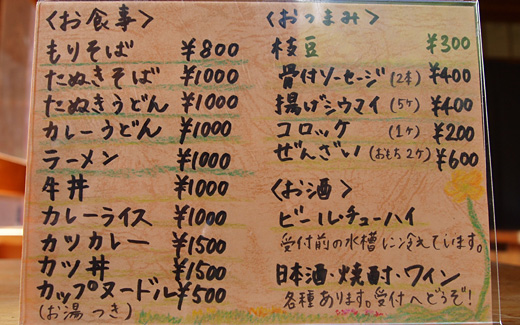 〈お食事〉
もりそば ¥800
たぬきそば ¥1000
たぬきうどん ¥1000
カレーうどん ¥1000
ラーメン ¥1000
牛丼 ¥1000
カレーライス ¥1000
カツカレー ¥1500
カツ丼 ¥1500
カップヌードル ¥500
(お湯つき)
〈おつまみ〉
枝豆 ¥300
骨付ソーセージ(2本) ¥400
揚げシウマイ(5ケ) ¥400
コロッケ(1ケ) ¥200
ぜんざい(おもち2ケ) ¥600
〈お酒〉
ビール・チューハイ
受付前の水槽に冷えています。
日本酒・焼酎・ワイン
各種あります。受付へどうぞ!